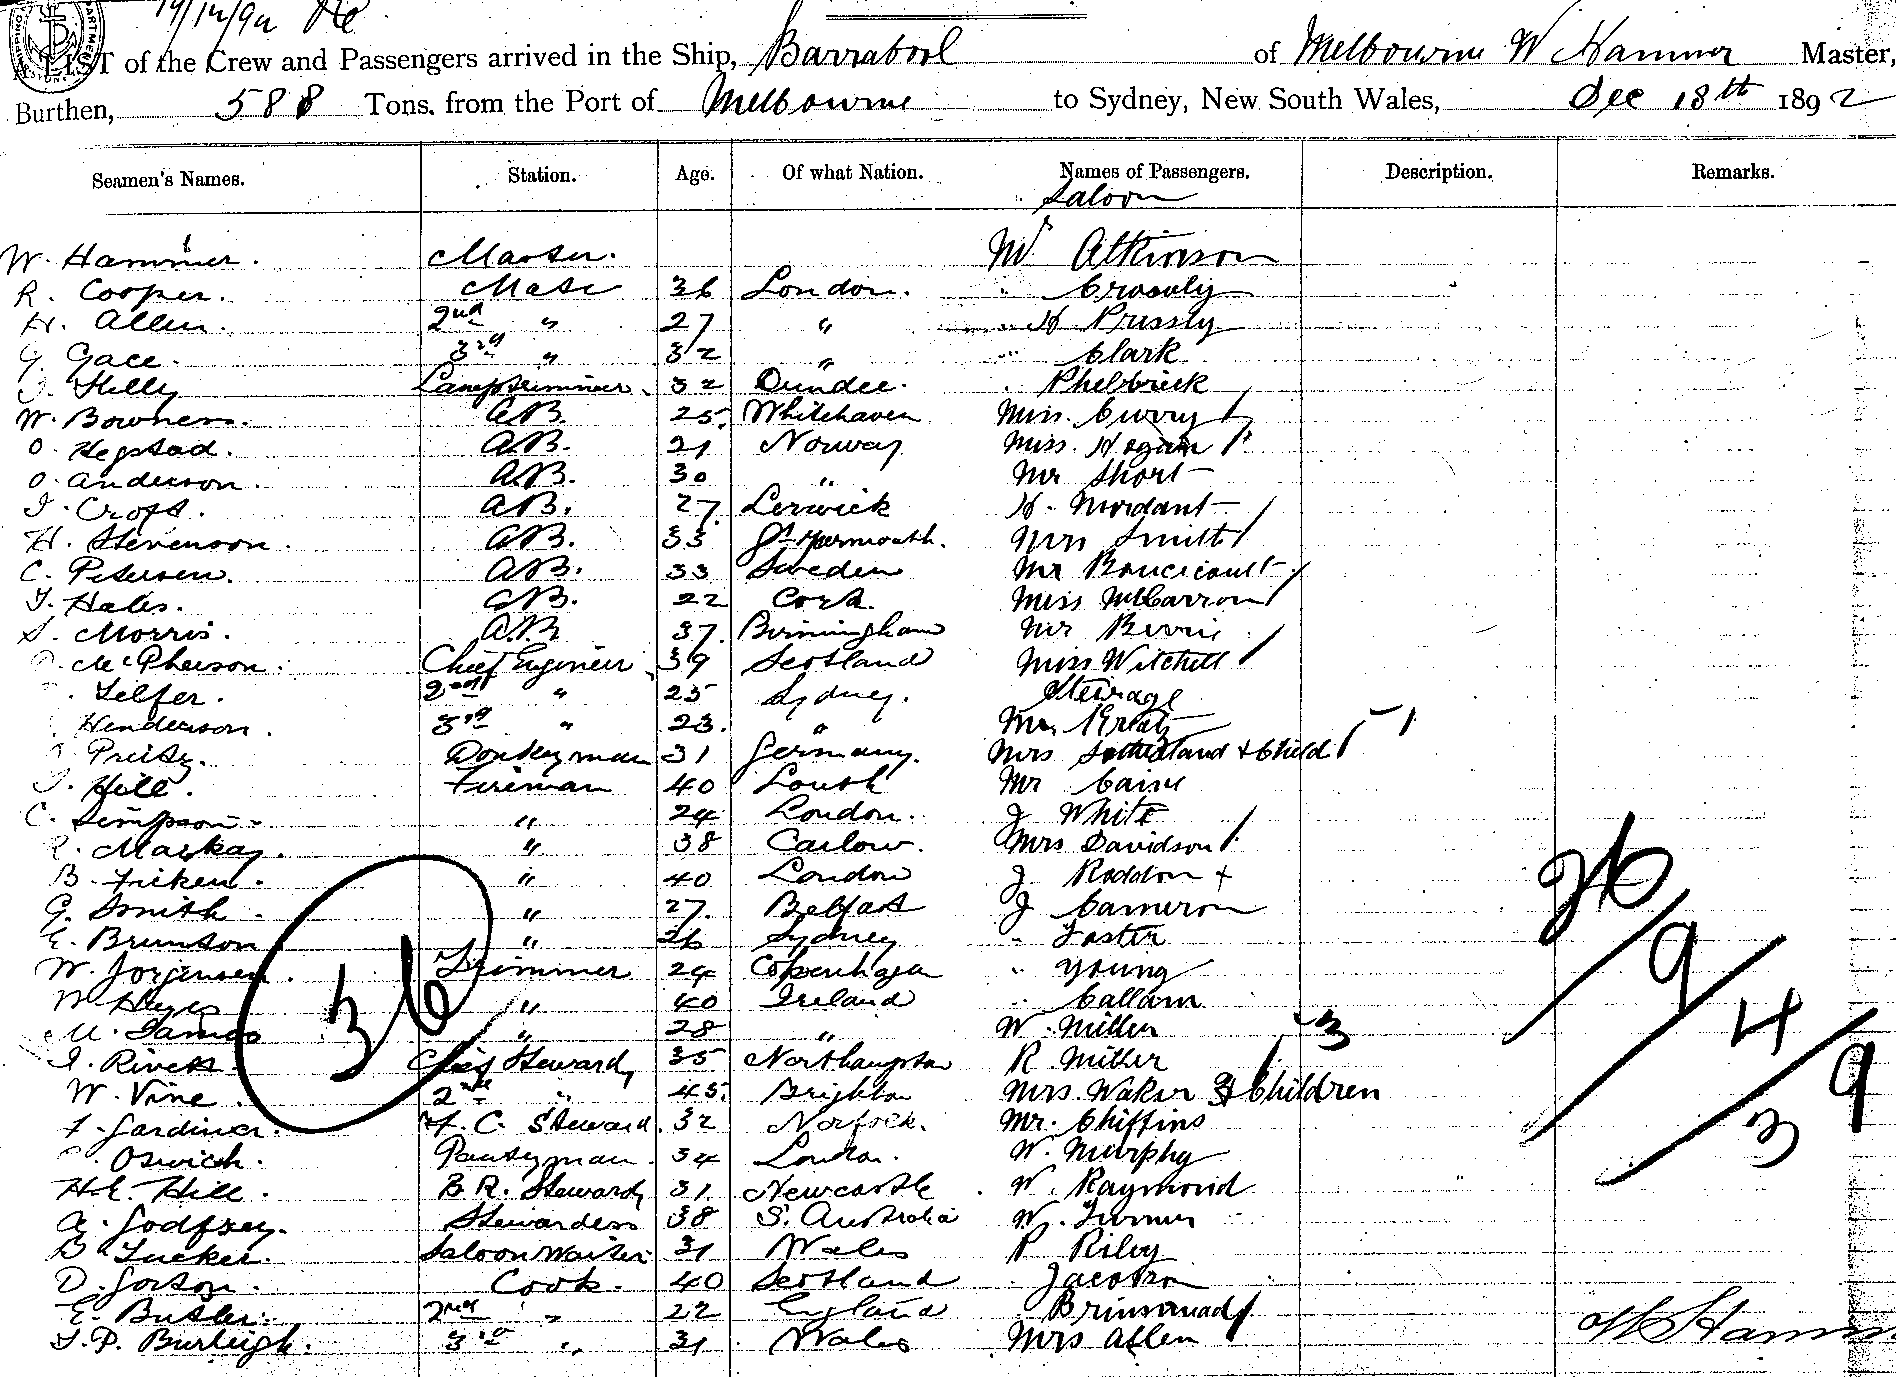 19/12/92
A LIST of the Crew and Passengers arrived in the Ship, Barrabool of Melbourne W Hammer Master,
Burthen, 588 Tons, from the Port of Melbourne to Sydney, New South Wales, Dec 18th 1892
Seamen's Names. Station. Age. Of what Nation. Names of Passengers. Description. Remarks.
Saloon
W. Hammer. Master. Mr Atkinson
R. Cooper. Mate 36 London. " Crossly
H. Allen. 2nd " 27 " " H Prissly
G Gace. 3rd " 32 " " Clark
Lamptrimmer. 32 Dundee. Phelbrick
W. Bowness. AB. 25. Whitehaven Miss. Curry
O. Hegstad. AB. 21 Norway Miss. Hogan
O. Anderson. AB. 30 " Mr Short
J. Croft. AB. 27. Lerwick H. Mordant
H. Stevenson. AB. 33 Gt Yarmouth. Mrs Smith
C. Petersen. AB. 33 Sweden Mr Boucicault
T. Hales. AB. 22 Cork. Miss McCarron
S. Morris. AB 37. Birmingham Mr
McPherson. Chief Engineer 39 Scotland Miss Witchell
Telfer. 2nd " 25 Sydney. Steerage
Henderson. 3rd " 23. " Mr
Donkeyman 31 Germany. Mrs Sutherland & Child
T. Hill. Fireman 40 Louth Mr Caine
C. Simpson. " 24 London. J White
Mackay. " 38 Carlow. Mrs Davidson
B. Ficken. " 40 London J Roddon +
G. Smith. " 27. Belfast J Cameron
E. Brunton " 26 Sydney " Foster
W. Jorgensen. Trimmer 24 Copenhagen " Young
Hayes " 40 Ireland " Callam
M. James " 28 " W. Miller
J. Rivett. Chief Steward 35 Northampton R. Miller
W. Vine. 2nd " 45. Brighton Mrs. Waker 3 Children
F. Gardiner. F. C. Steward. 32 Norfolk. Mr. Chiffins
Oswich. Pantryman. 34 London. W. Murphy
H.E. Hill. B. R. Steward 31 Newcastle W. Raymond
A. Godfrey. Stewardess 38 S. Australia W. Turner
B Tucker. Saloon Waiter 31 Wales P Riley
D. Cook. 40 Scotland Jacobson
E. Butler. 2nd " 22 England Brinsmead
T.P. Burleigh. 3rd " 31 Wales Mrs Allen
36
26/9/4/9
3
W Hammer